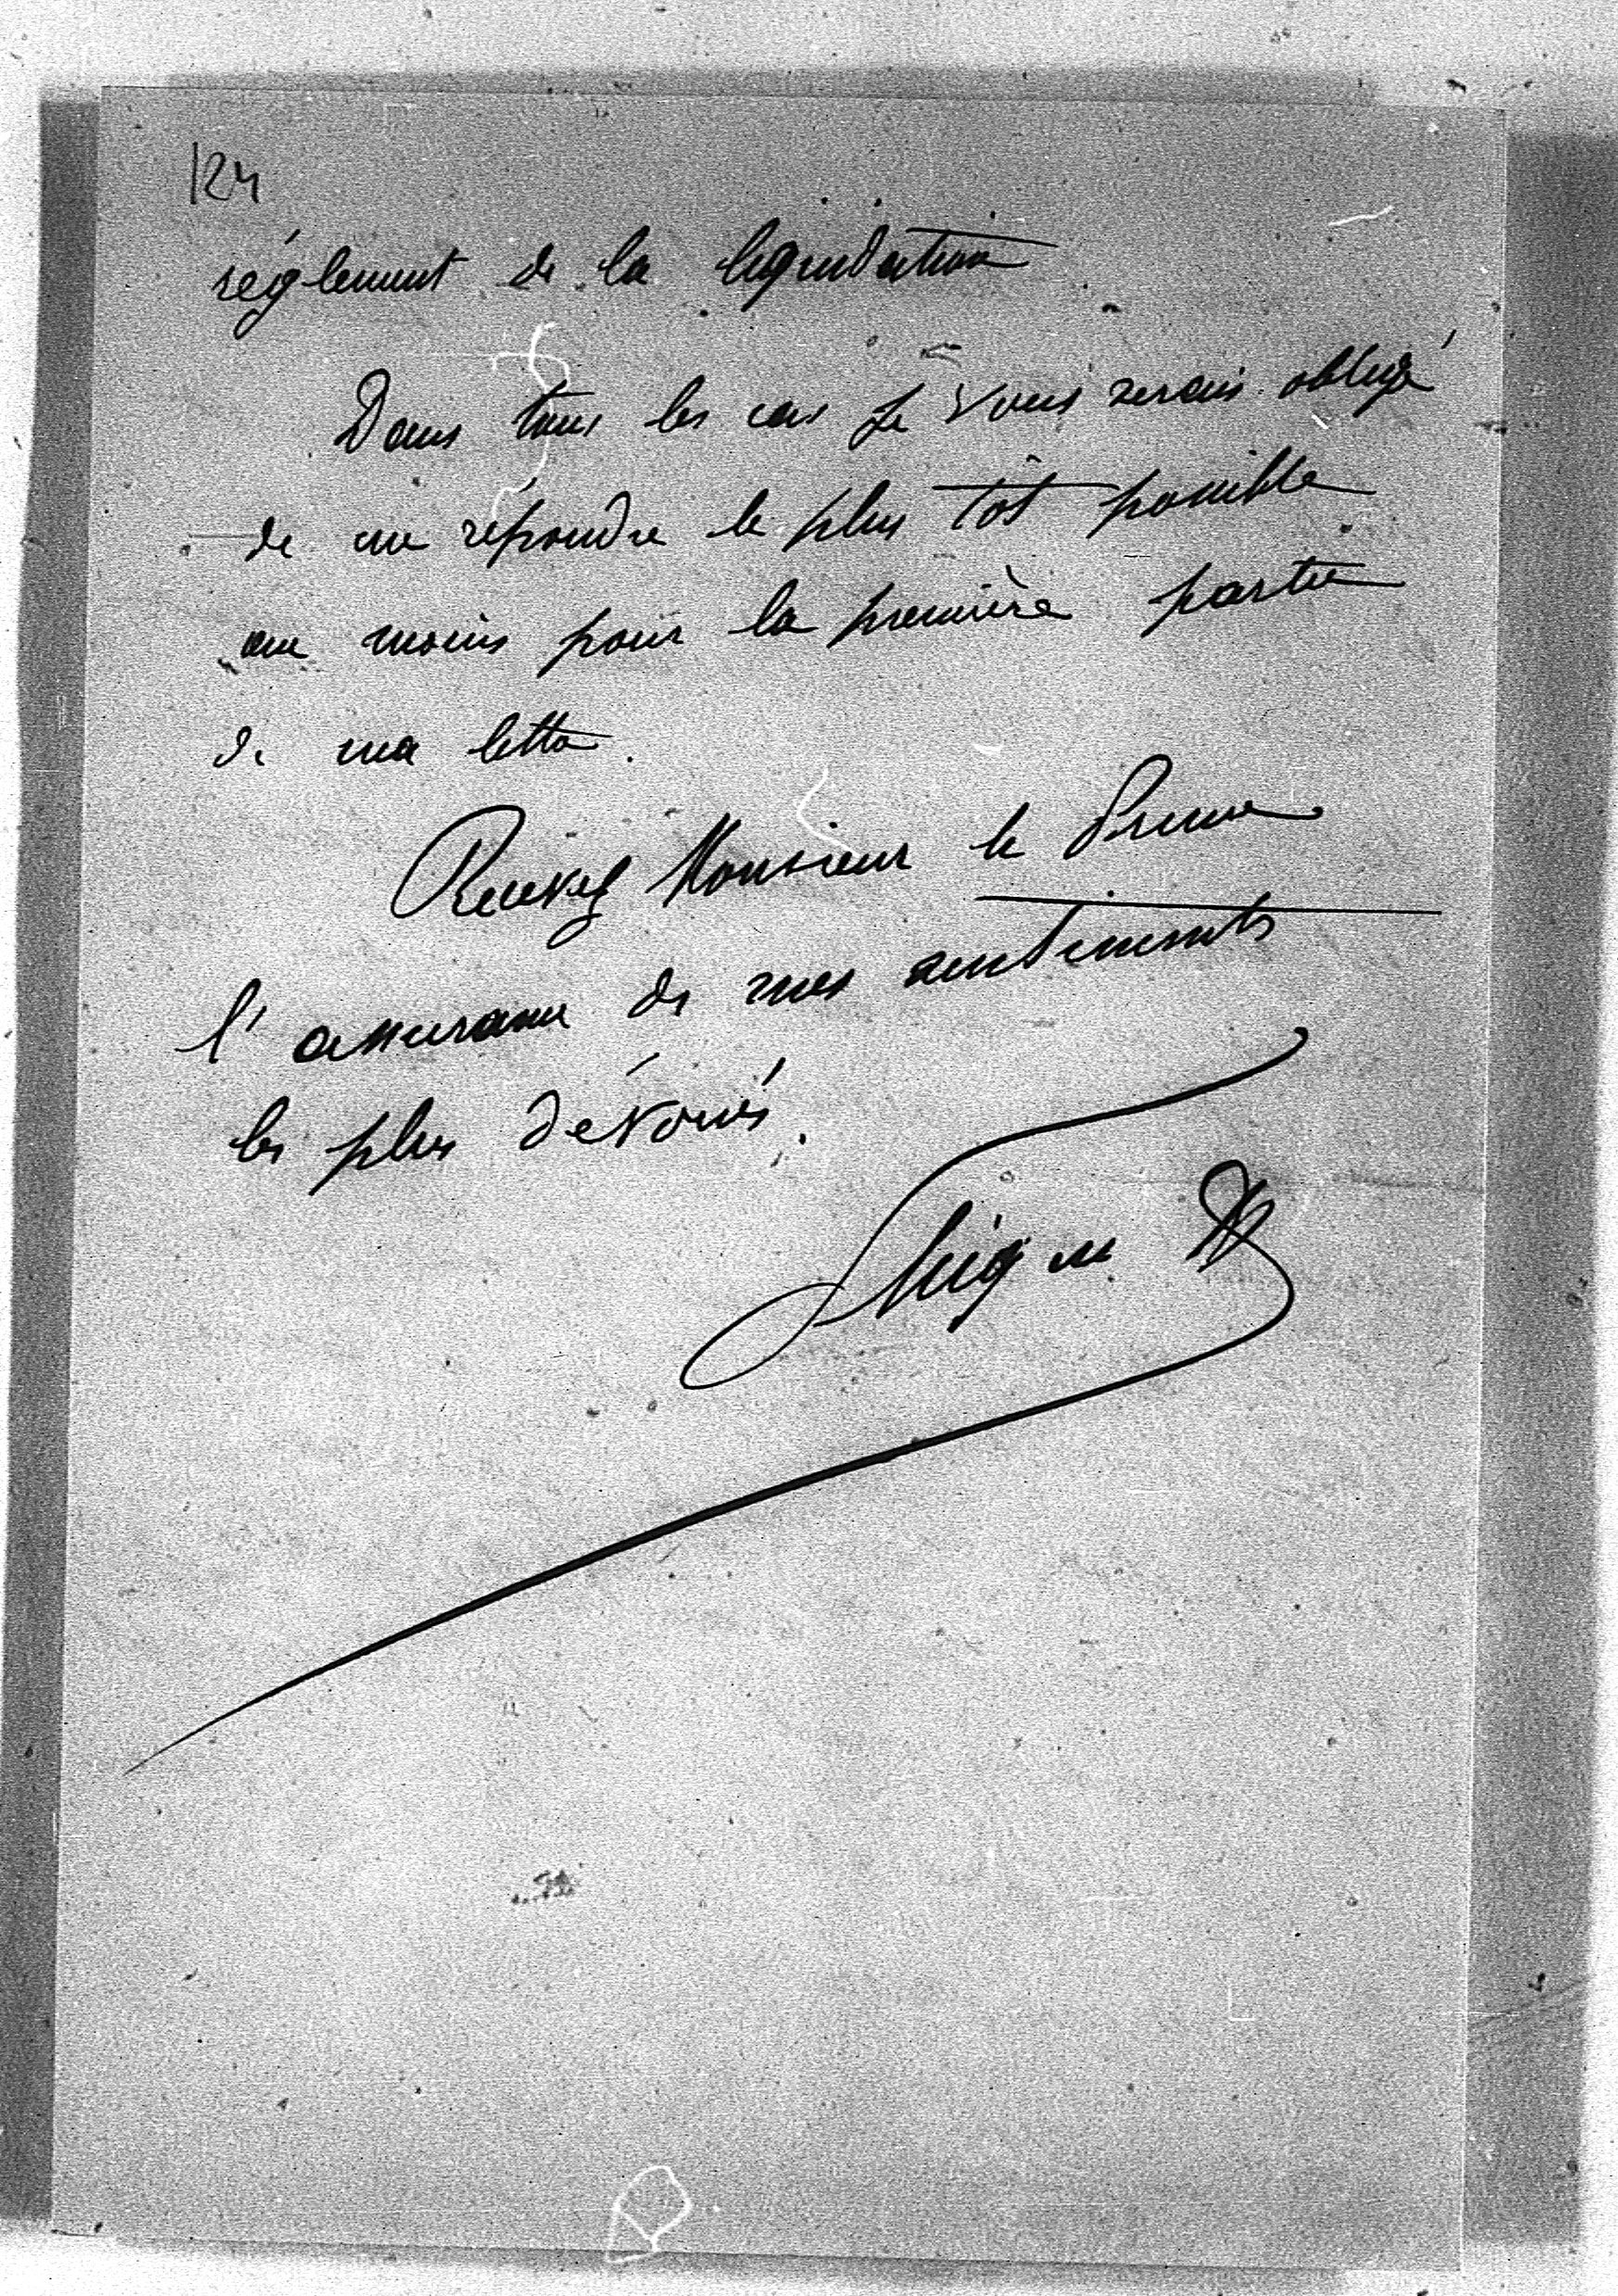 124
réglement de la liquidation
Dans tous les cas je vous serais obligé
de me répondre le plus tôt possible
au moins pour la première partie
de ma lettre.
Recevez Monsieur le Prince
l'assurance de mes sentiments
les plus dévoués.